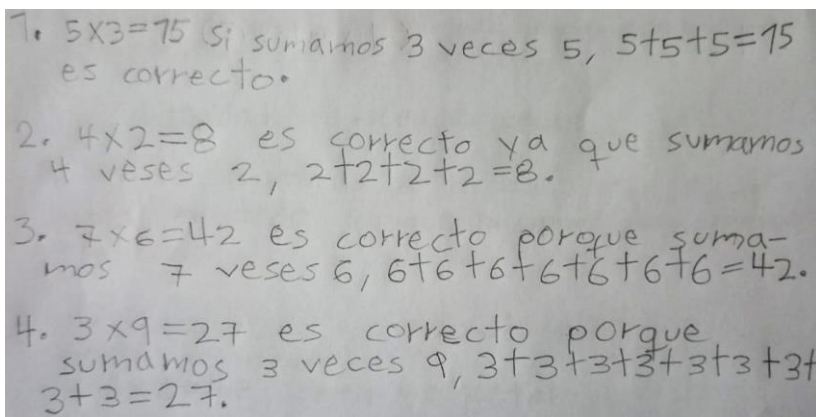 1. 5x3=15 si sumamos 3 veces 5, 5+5+5=15
es correcto.
2. 4x2=8 es correcto ya que sumamos
4 veses 2, 2+2+2+2=8.
3. 7x6=42 es correcto porque suma-
mos 7 veses 6, 6+6+6+6+6+6+6=42.
4. 3x9=27 es correcto porque
sumamos 3 veces 9, 3+3+3+3+3+3+3+
3+3=27.